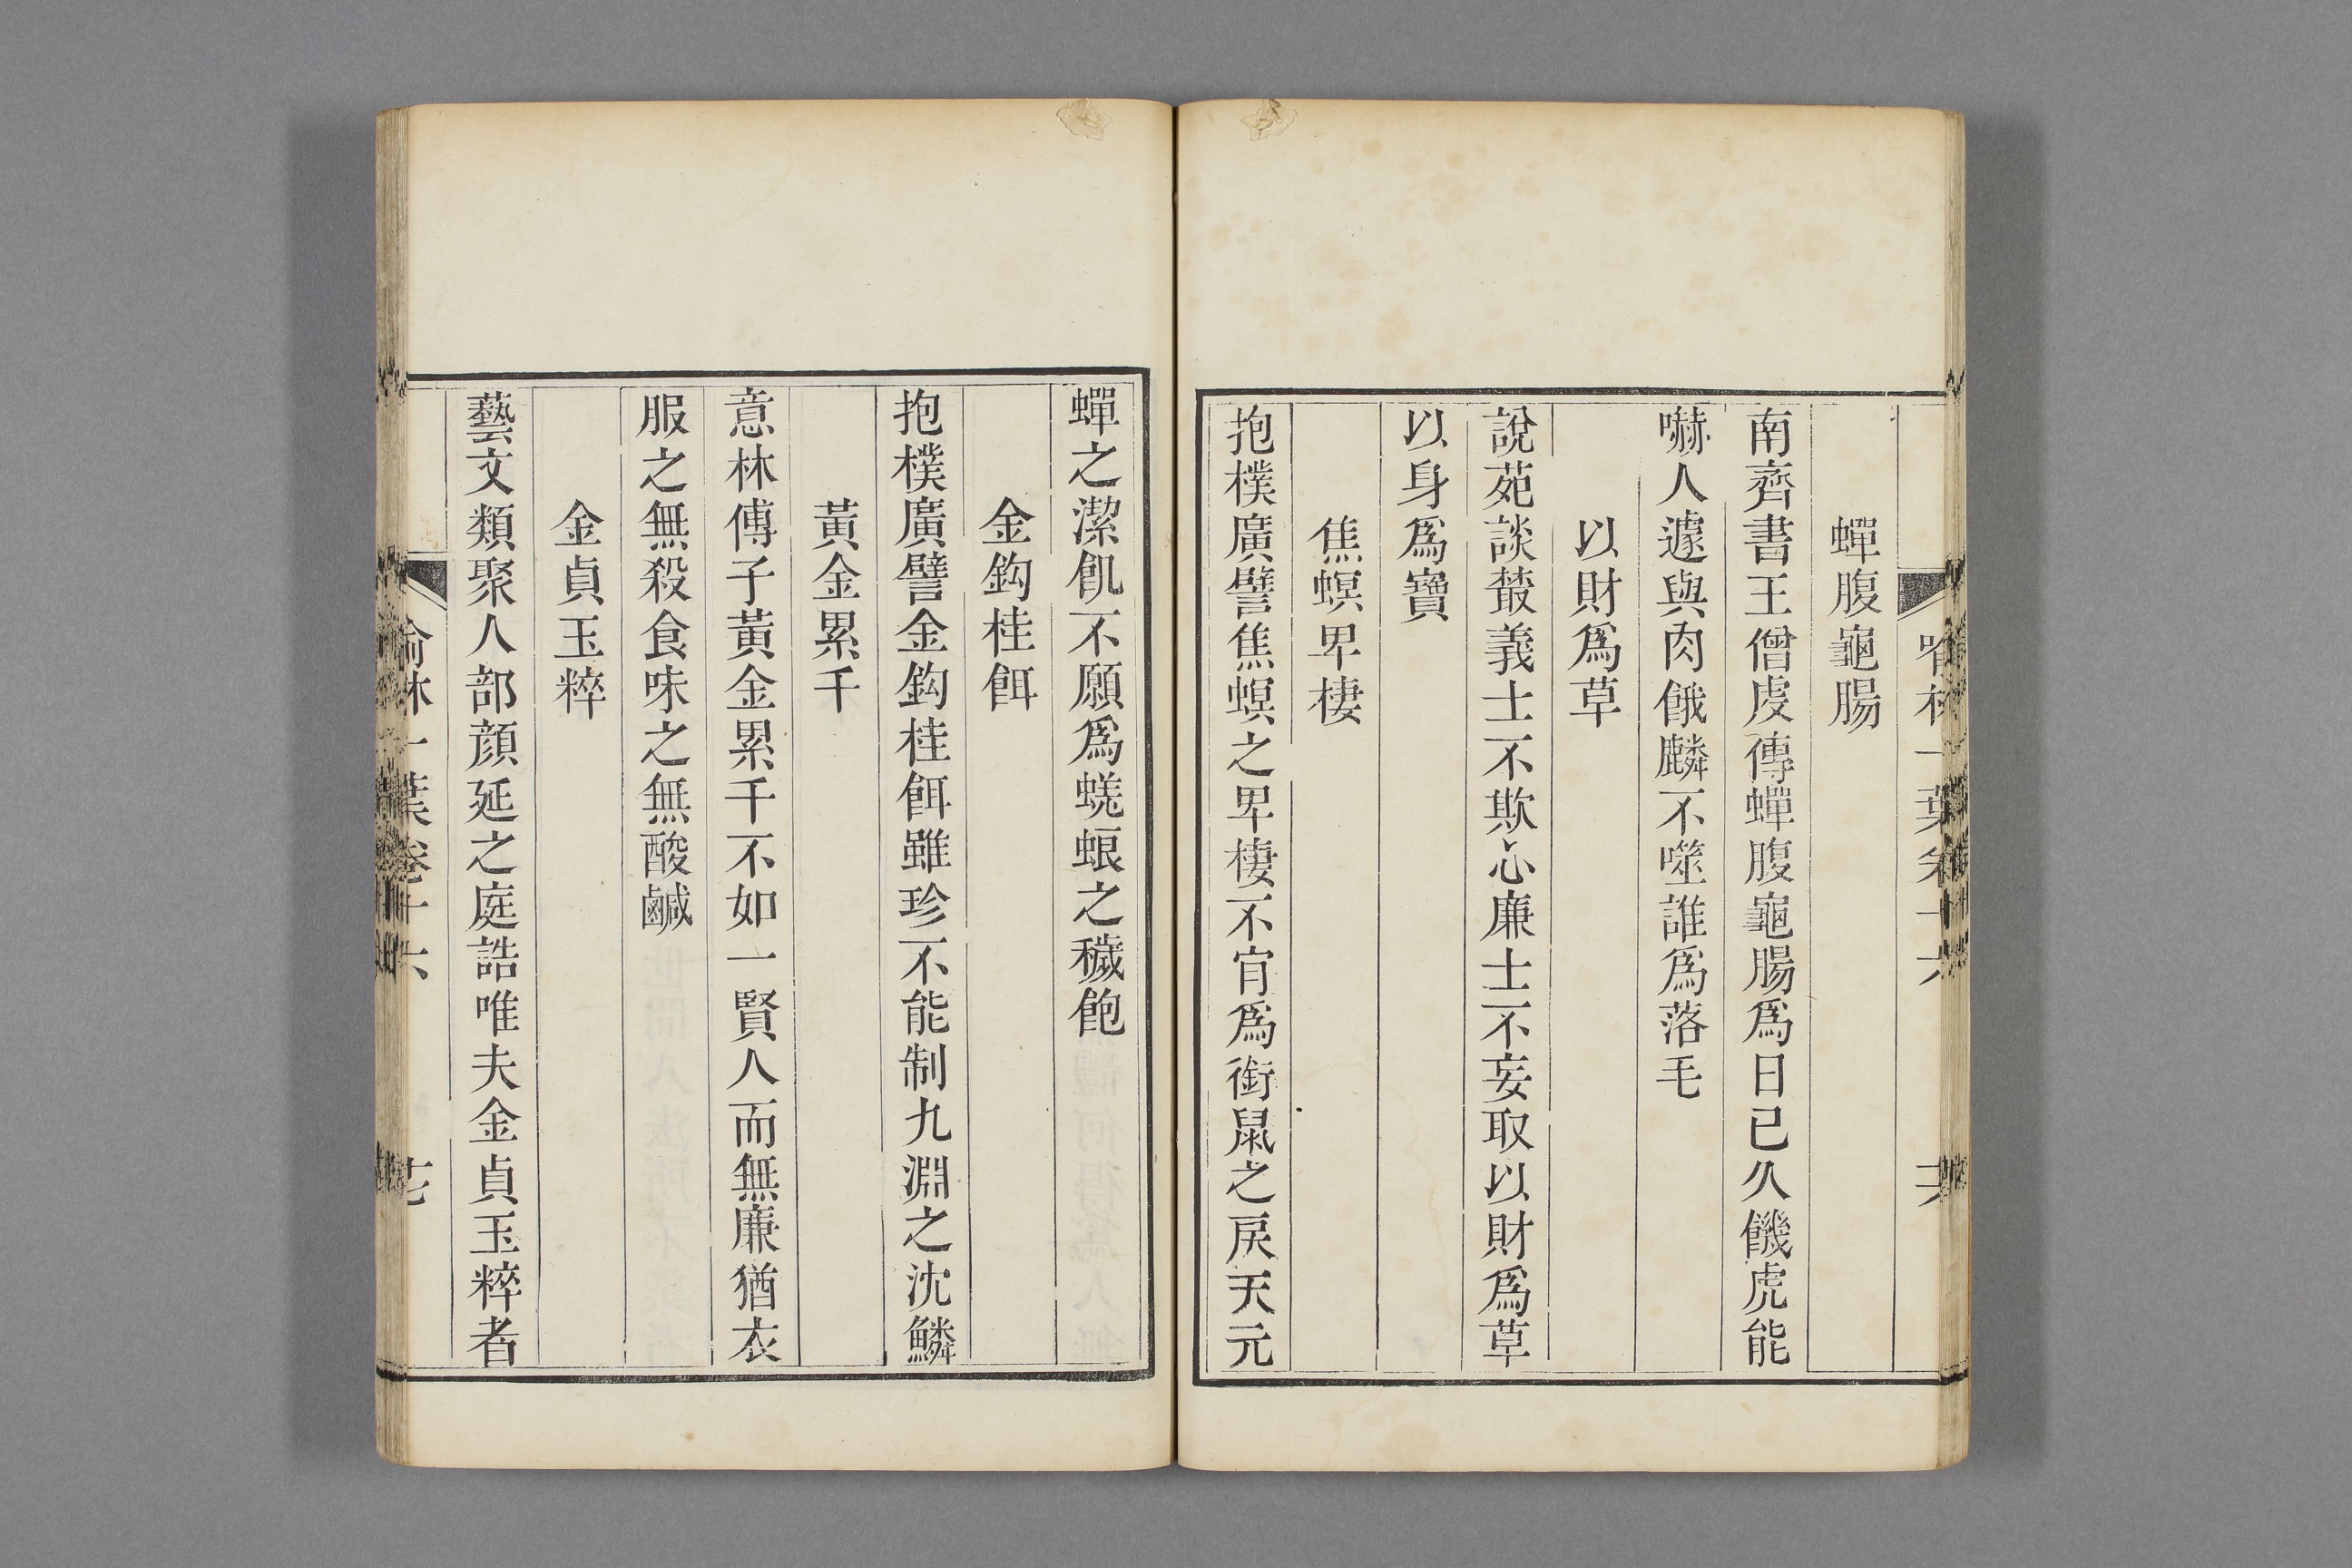 蟬腹龜腸
南齊書王僧虔傳蟬腹龜腸爲日已久饑虎能
嚇人遽與肉餓麟不噬誰爲落毛
以財爲草
說苑談叢義士不欺心廉士不妄取以財爲草
以身爲寶
焦螟卑棲
抱樸廣譬焦螟之卑棲不肯爲銜鼠之戾天元
蟬之潔飢不願爲蜣蜋之穢飽
金鈎桂餌
抱樸廣譬金鈎桂餌雖珍不能制九淵之沈鱗
黃金累千
意林傅子黃金累千不如一賢人而無廉猶衣
服之無殺食味之無酸鹹
金貞玉粹
藝文類聚人部顏延之庭誥唯夫金貞玉粹者
喻林一葉卷十六